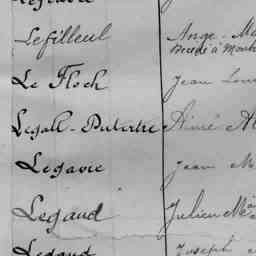 Lefilleul Ange - Ma
Le Floch Jean Loui
Legall - Dutertre Aimé Al
Legavre Jean M
Legaud Julien Ma
Legaud Joseph